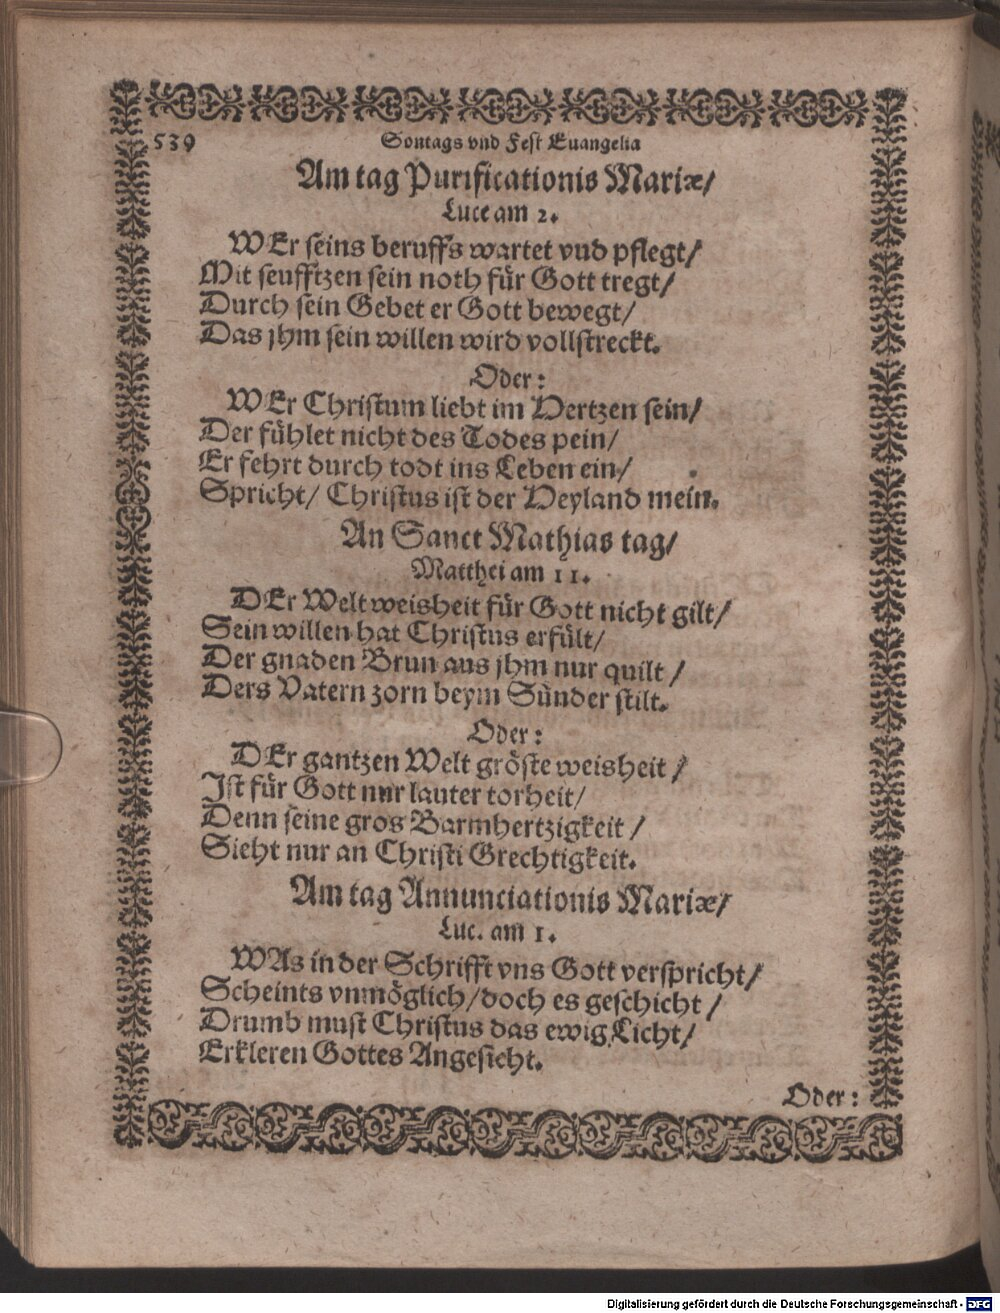 539
Sontags vnd Fest Euangelia
Am tag Purificationis Mariæ/
Luce am 2.
WEr seins beruffs wartet vnd pflegt/
Mit seufftzen sein noth für Gott tregt/
Durch sein Gebet er Gott bewegt/
Das jhm sein willen wird vollstreckt.
Oder:
WEr Christum liebt im Hertzen sein/
Der fühlet nicht des Todes pein/
Er fehrt durch todt ins Leben ein/
Spricht/ Christus ist der Heyland mein.
An Sanct Mathias tag/
Matthei am 11.
DEr Welt weisheit für Gott nicht gilt/
Sein willen hat Christus erfült/
Der gnaden Brun aus jhm nur quilt/
Ders Vatern zorn beym Sünder stilt.
Oder:
DEr gantzen Welt gröste weisheit/
Ist für Gott nur lauter torheit/
Denn seine gros Barmhertzigkeit/
Sieht nur an Christi Grechtigkeit.
Am tag Annunciationis Mariæ/
Luc. am 1.
WAs in der Schrifft vns Gott verspricht/
Scheints vnmöglich/doch es geschicht/
Drumb must Christus das ewig Licht/
Erkleren Gottes Angesicht.
Oder:
Digitalisierung gefördert durch die Deutsche Forschungsgemeinschaft - DFG